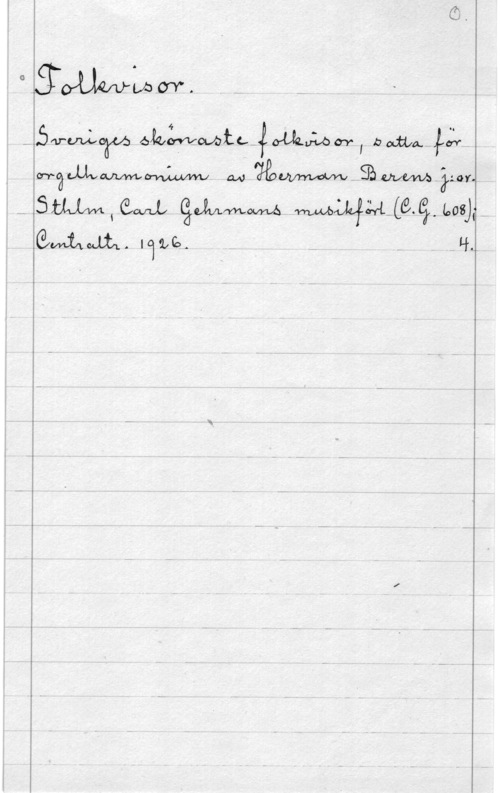 O.
Folkvisor.
Sveriges skönaste folkvisor, satta för
orgelharmonium av Herman Berens j:or.
Sthlm, Carl Gehrmans musikförl. (C.G. 608);
Centraltr. 1926. 4.